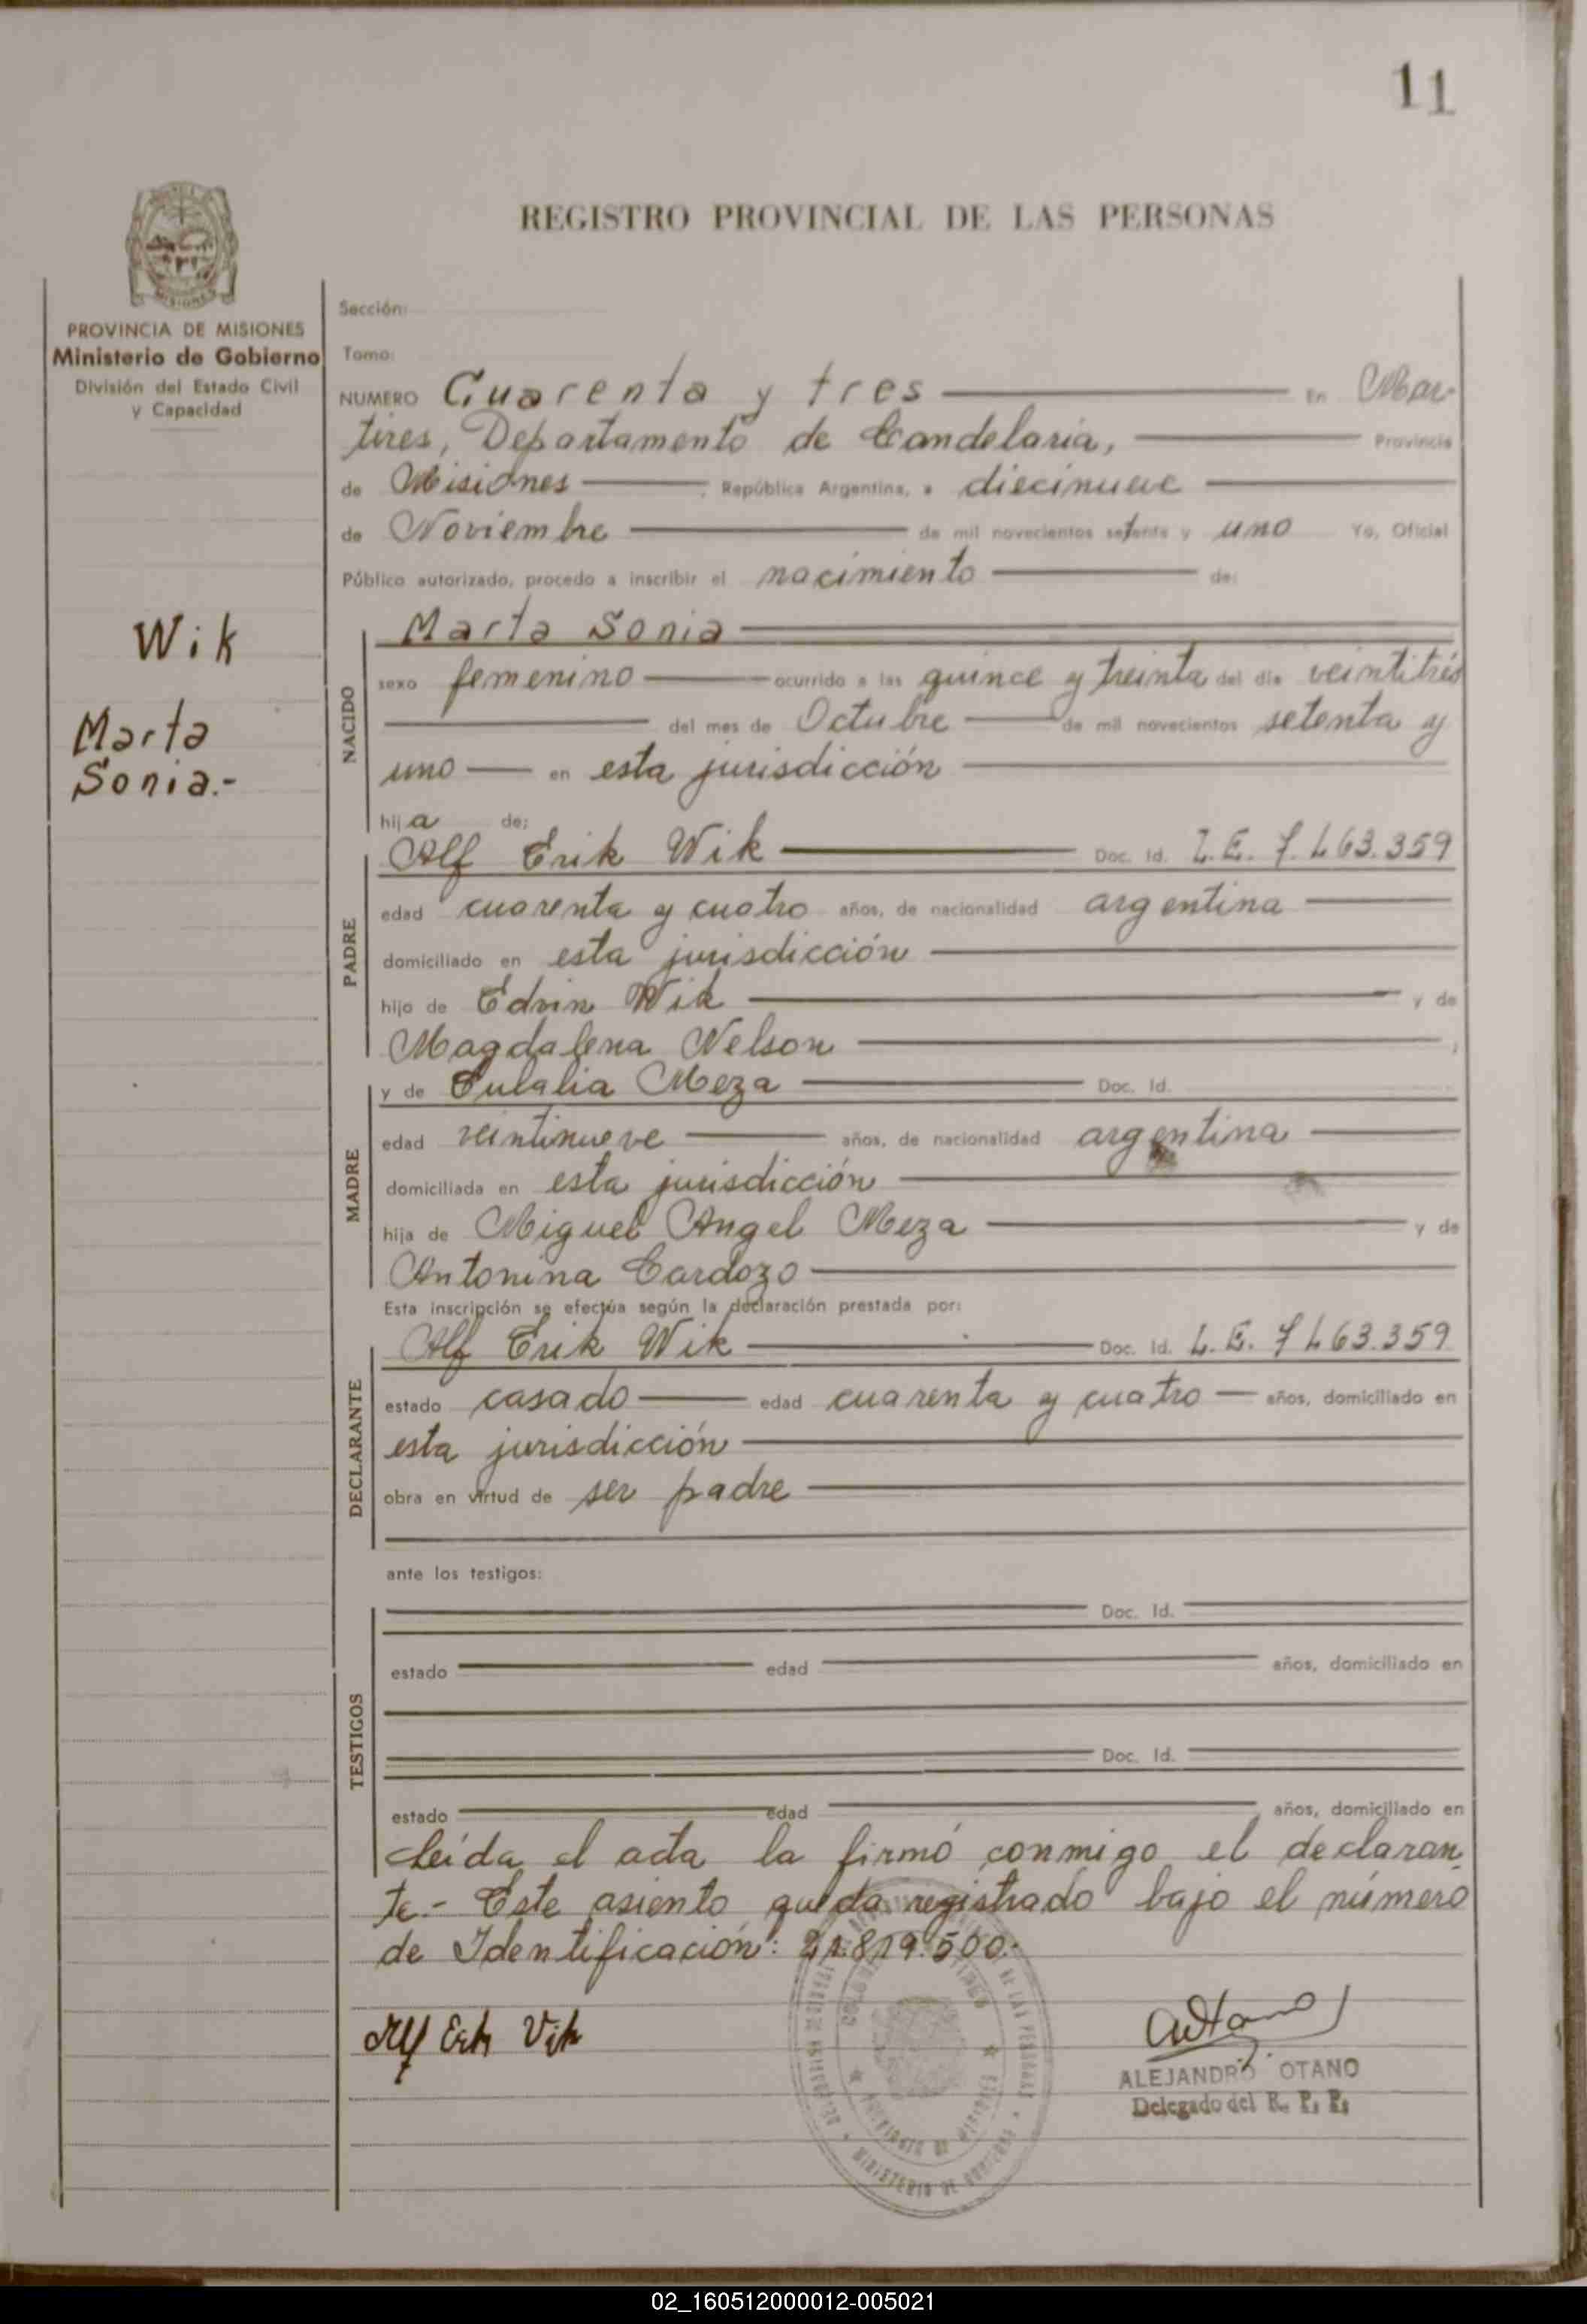 11
REGISTRO PROVINCIAL DE LAS PERSONAS
PROVINCIA DE MISIONES
Ministerio de Gobierno
División del Estado Civil
y Capacidad
Wik
Marta
Sonia.-
Sección:
Tomo:
NUMERO Cuarenta y tres En Mar-
tires, Departamento de Candelaria, Provincia
de Misiones , República Argentina, a diecinueve
de Noviembre de mil novecientos setenta y uno Yo, Oficial
Público autorizado, procedo a inscribir el nacimiento de:
NACIDO
Marta Sonia
sexo femenino ocurrido a las quince y treinta del día veintitrés
del mes de Octubre de mil novecientos setenta y
uno en esta jurisdicción
hija de:
PADRE
Alf Erik Wik Doc. Id. L.E. 7.463.359
edad cuarenta y cuatro años, de nacionalidad argentina
domiciliado en esta jurisdicción
hijo de Edvin Wik y de
Magdalena Nelson ,
MADRE
y de Eulalia Meza Doc. Id.
edad veintinueve años, de nacionalidad argentina
domiciliada en esta jurisdicción
hija de Miguel Angel Meza y de
Antonina Cardozo
Esta inscripción se efectúa según la declaración prestada por:
DECLARANTE
Alf Erik Wik Doc. Id. L.E. 7463.359
estado casado edad cuarenta y cuatro años, domiciliado en
esta jurisdicción
obra en virtud de ser padre
ante los testigos:
TESTIGOS
Doc. Id.
estado edad años, domiciliado en
Doc. Id.
estado edad años, domiciliado en
Leída el acta la firmó conmigo el declaran
te.- Este asiento queda registrado bajo el número
de Identificación: 21.819.500.-
Alf Erik Vik
ALEJANDRO OTANO
Delegado del R. P. P.
MINISTERIO DE GOBIERNO
PROVINCIA DE MISIONES
02_160512000012-005021